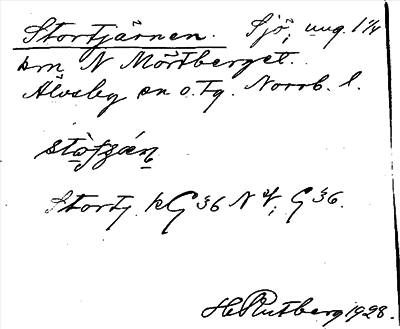 Stortjärnen. Sjö, ung. 1 1/4
km N Mörtberget.
Älvsby sn o. tg. Norrb. l.
Stortj. kG 36 N V; G 36.
H. Rutberg 1928.